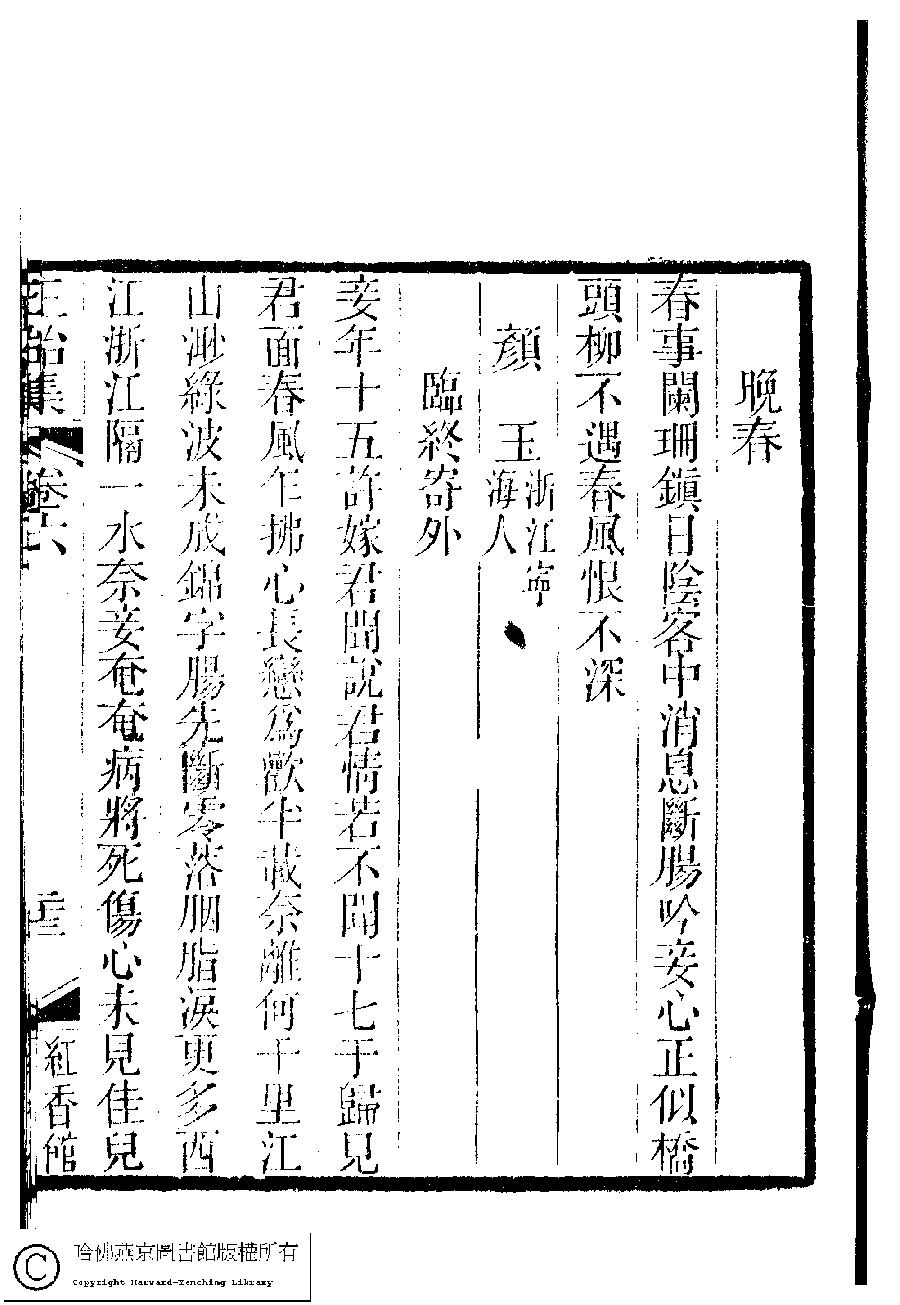 晚春
春事闌珊鎮日陰客中消息斷腸吟妾心正似橋
頭柳不遇春風恨不深
顏玉 浙江寧
海人
臨終寄外
妾年十五許嫁君聞說君情若不聞十七于歸見
君面春風乍拂心長戀爲歡半載奈離何千里江
山渺綠波未成錦字腸先斷零落胭脂淚更多西
江浙江隔一水奈妾奄奄病將死傷心未見佳兒
集 卷六 紅香館
哈佛燕京圖書館版權所有
Copyright Harvard-Yenching Library